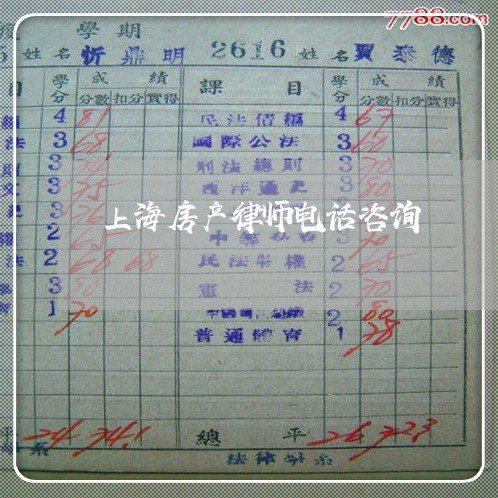 7788.com
學期
姓名 忻鼎明 2616 姓名 賈泰德
目 學分 成績 課目 學分 成績
分數 扣分 實得 分數 扣分 實得
4 81 民法債編 4 67
法 3 68 國際公法 3 60
3 刑法總則 3 70
3 75 西洋通史 3 80
3 76 3
上海房产律师电话咨询
2 65 3 70
法 2 68 68 民法物權 2 65
3 80 憲法 2 70
1 70 2 80
普通體育 1 78
平 24 74.1 總平 26 72.3
系 法律學系